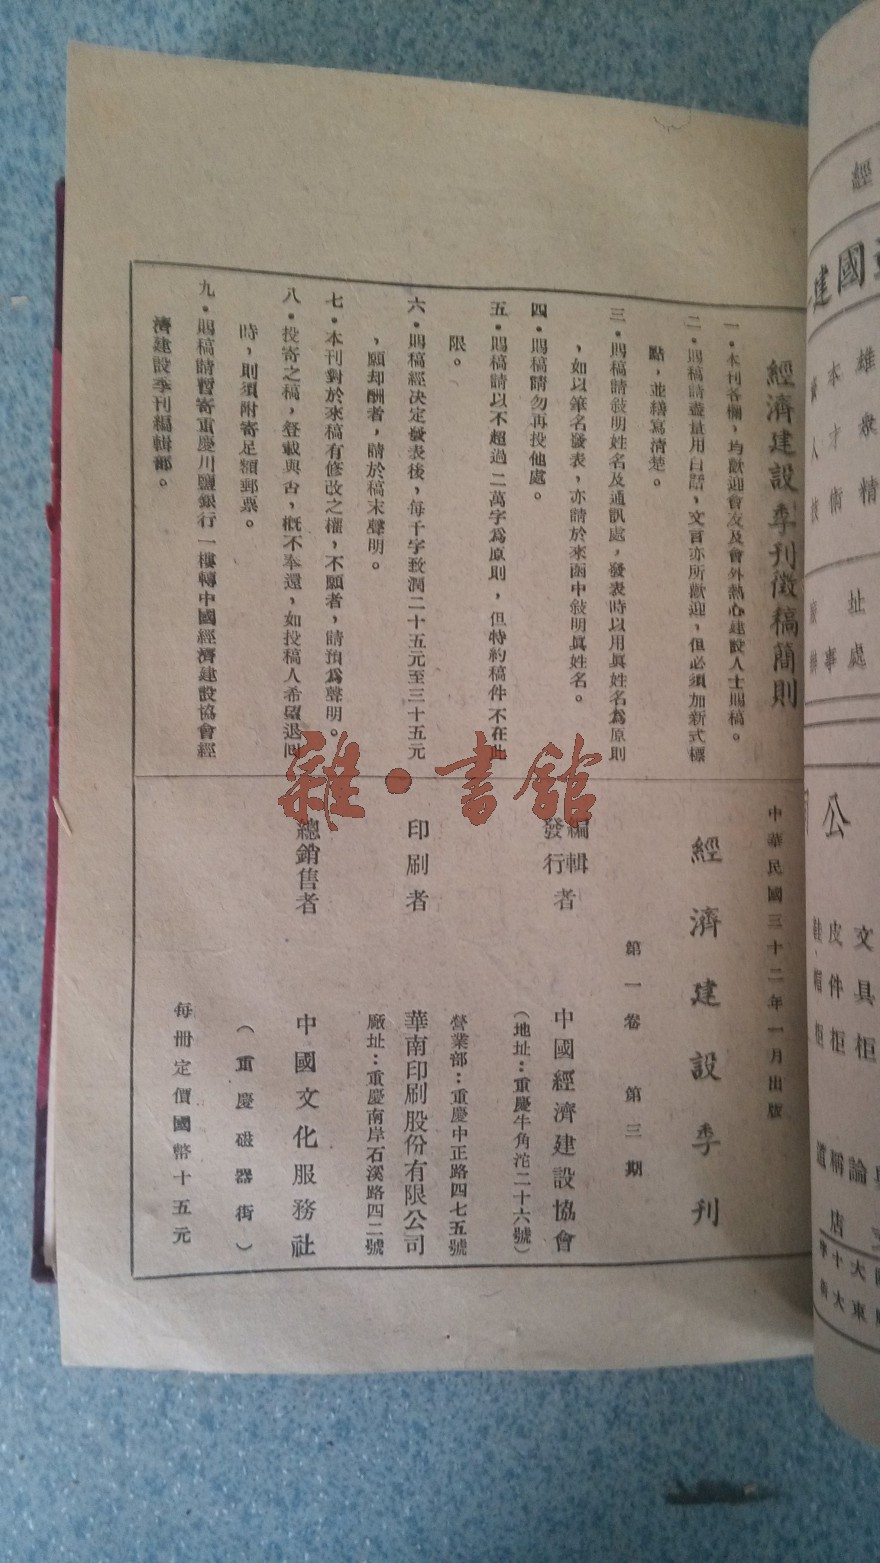 經濟建設季刊徵稿簡則
一•本刊各欄，均歡迎會友及會外熱心建設人士賜稿。
二•賜稿請盡量用白話，文言亦所歡迎，但必須加新式標
點，並繕寫清楚。
三•賜稿請敍明姓名及通訊處，發表時以用眞姓名爲原則
，如以筆名發表，亦請於來函中敍明眞姓名。
四•賜稿請勿再投他處。
五•賜稿請以不超過二萬字爲原則，但特約稿件不在此
限。
六•賜稿經決定發表後，每千字致潤二十五元至三十五元
，願却酬者，請於稿末聲明。
七•本刊對於來稿有修改之權，不願者，請預爲聲明。
八•投寄之稿，登載與否，槪不奉還，如投稿人希望退回
時，則須附寄足額郵票。
九•賜稿請暫寄重慶川鹽銀行一樓轉中國經濟建設協會經
濟建設季刊編輯部。
中華民國三十二年一月出版
經濟建設季刊
第一卷 第三期
編輯
發行者
中國經濟建設協會
（地址：重慶牛角沱二十六號）
印刷者
營業部：重慶中正路四七五號
華南印刷股份有限公司
廠址：重慶南岸石溪路四二號
總銷售者
中國文化服務社
（重慶磁器街）
每冊定價國幣十五元
雜•書館
經
國建
雄衆精
本才術
人
址
處
事
公
文具柜
皮件柜
帽柜
論
店
道